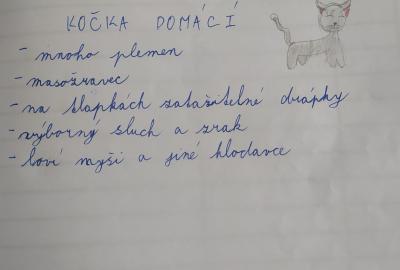 KOČKA DOMÁCÍ
- mnoho plemen
- masožravec
- na tlapkách zatažitelné drápky
- výborný sluch a zrak
- loví myši a jiné hlodavce